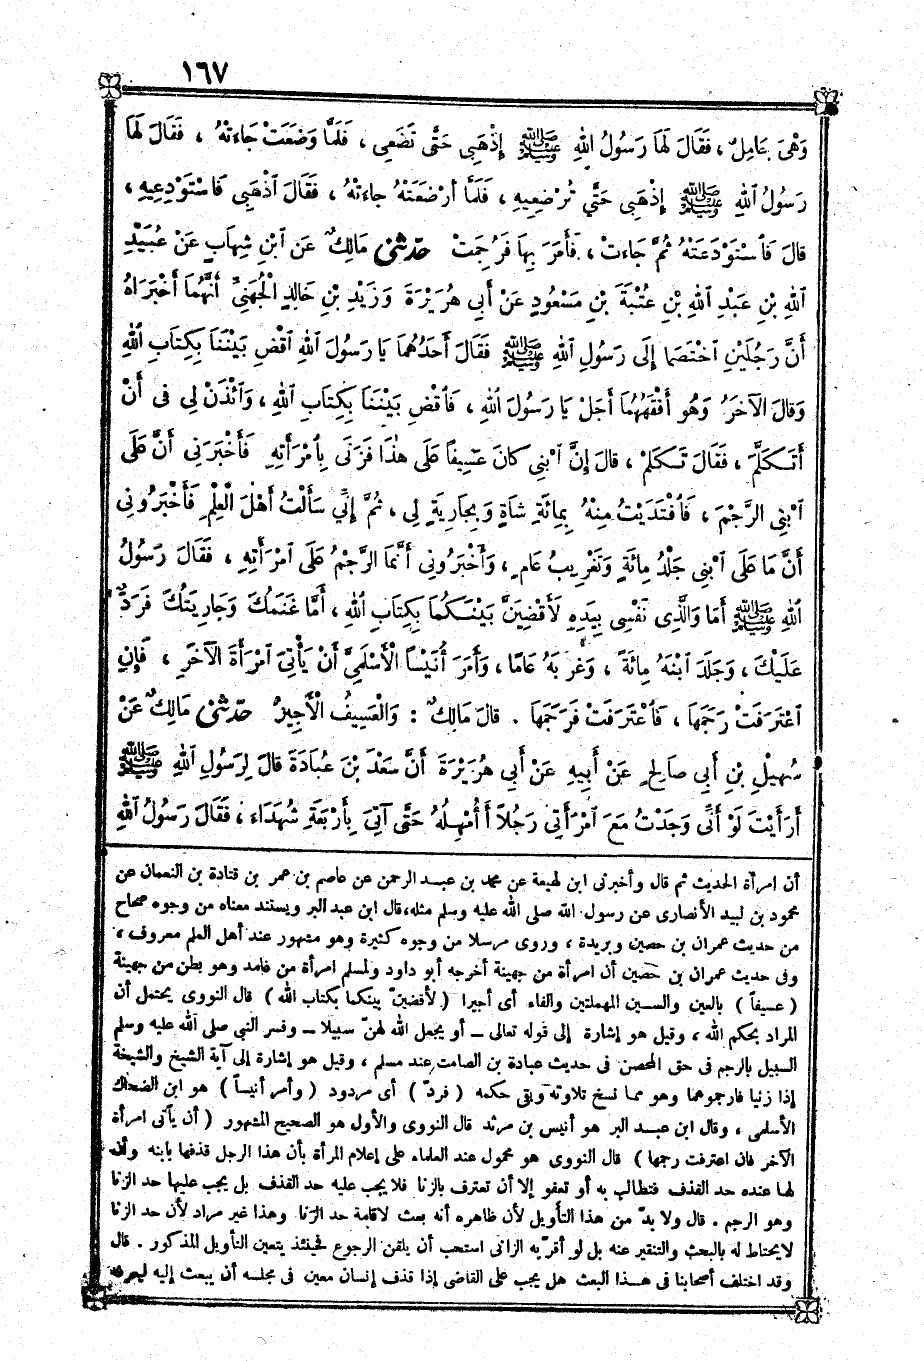 ١٦٧
وَهْىَ حَامِلٌ ، فَقَالَ لَهَا رَسُولُ اللهِ ﷺ إِذْهَبِى حَتَّى تَضَعِى ، فَلَمَّا وَضَعَتْ جَاءَتْهُ ، فَقَالَ لَهَا
رَسُولُ اللهِ ﷺ إِذْهَبِى حَتَّى تُرْضِعِيهِ ، فَلَمَّا أَرْضَعَتْهُ جَاءَتْهُ ، فَقَالَ اذْهَبِى فَاسْتَوْدِعِيهِ ،
قَالَ فَاسْتَوْدَعَتْهُ ثُمَّ جَاءَتْ ، فَأَمَرَ بِهَا فَرُجِمَتْ حَدَّثَنِى مَالِكٌ عَنِ ابْنِ شِهَابٍ عَنْ عُبَيْدِ
اللهِ بْنِ عَبْدِ اللهِ بْنِ عُتْبَةَ بْنِ مَسْعُودٍ عَنْ أَبِى هُرَيْرَةَ وَزَيْدِ بْنِ خَالِدٍ الْجُهَنِىِّ أَنَّهُمَا أَخْبَرَاهُ
أَنَّ رَجُلَيْنِ اخْتَصَمَا إِلَى رَسُولِ اللهِ ﷺ فَقَالَ أَحَدُهُمَا يَا رَسُولَ اللهِ اقْضِ بَيْنَنَا بِكِتَابِ اللهِ
وَقَالَ الآخَرُ وَهُوَ أَفْقَهُهُمَا أَجَلْ يَا رَسُولَ اللهِ ، فَاقْضِ بَيْنَنَا بِكِتَابِ اللهِ ، وَائْذَنْ لِى فِى أَنْ
أَتَكَلَّمَ ، فَقَالَ تَكَلَّمْ ، قَالَ إِنَّ ابْنِى كَانَ عَسِيفًا عَلَى هٰذَا فَزَنَى بِامْرَأَتِهِ فَأَخْبَرَنِى أَنَّ عَلَى
ابْنِى الرَّجْمَ ، فَافْتَدَيْتُ مِنْهُ بِمِائَةِ شَاةٍ وَبِجَارِيَةٍ لِى ، ثُمَّ إِنِّى سَأَلْتُ أَهْلَ الْعِلْمِ فَأَخْبَرُونِى
أَنَّ مَا عَلَى ابْنِى جَلْدُ مِائَةٍ وَتَغْرِيبُ عَامٍ ، وَأَخْبَرُونِى أَنَّمَا الرَّجْمُ عَلَى امْرَأَتِهِ ، فَقَالَ رَسُولُ
اللهِ ﷺ أَمَا وَالَّذِى نَفْسِى بِيَدِهِ لَأَقْضِيَنَّ بَيْنَكُمَا بِكِتَابِ اللهِ ، أَمَّا غَنَمُكَ وَجَارِيَتُكَ فَرَدٌّ
عَلَيْكَ ، وَجَلَدَ ابْنَهُ مِائَةً ، وَغَرَّبَهُ عَامًا ، وَأَمَرَ أُنَيْسًا الْأَسْلَمِىَّ أَنْ يَأْتِىَ امْرَأَةَ الآخَرِ ، فَإِنِ
اعْتَرَفَتْ رَجَمَهَا ، فَاعْتَرَفَتْ فَرَجَمَهَا . قَالَ مَالِكٌ : وَالْعَسِيفُ الْأَجِيرُ حَدَّثَنِى مَالِكٌ عَنْ
سُهَيْلِ بْنِ أَبِى صَالِحٍ عَنْ أَبِيهِ عَنْ أَبِى هُرَيْرَةَ أَنَّ سَعْدَ بْنَ عُبَادَةَ قَالَ لِرَسُولِ اللهِ ﷺ
أَرَأَيْتَ لَوْ أَنِّى وَجَدْتُ مَعَ امْرَأَتِى رَجُلاً أَأُمْهِلُهُ حَتَّى آتِىَ بِأَرْبَعَةِ شُهَدَاءَ ، فَقَالَ رَسُولُ اللهِ
أن امرأة الحديث ثم قال وأخبرنى ابن لهيعة عن محمد بن عبد الرحمن عن عاصم بن عمر بن قتادة بن النعمان عن
محمود بن لبيد الأنصارى عن رسول الله صلى الله عليه وسلم مثله، قال ابن عبد البر ويستند معناه من وجوه صحاح
من حديث عمران بن حصين وبريدة ، وروى مرسلا من وجوه كثيرة وهو مشهور عند أهل العلم معروف ،
وفى حديث عمران بن حصين أن امرأة من جهينة أخرجه أبو داود ولمسلم امرأة من غامد وهو بطن من جهينة
( عسيفاً ) بالعين والسين المهملتين والفاء أى أجيرا ( لأقضينّ بينكما بكتاب الله ) قال النووى يحتمل أن
المراد بحكم الله ، وقيل هو إشارة إلى قوله تعالى ــ أو يجعل الله لهنّ سبيلا ــ وفسر النبى صلى الله عليه وسلم
السبيل بالرجم فى حق المحصن فى حديث عبادة بن الصامت عند مسلم ، وقيل هو إشارة إلى آية الشيخ والشيخة
إذا زنيا فارجموهما وهو مما نسخ تلاوته وبقى حكمه ( فردّ ) أى مردود ( وأمر أنيساً ) هو ابن الضحاك
الأسلمى ، وقال ابن عبد البر هو أنيس بن مرثد قال النووى والأول هو الصحيح المشهور ( أن يأتى امرأة
الآخر فان اعترفت رجمها ) قال النووى هو محمول عند العلماء على إعلام المرأة بأن هذا الرجل قذفها بابنه وأنه
لها عنده حد القذف فتطالب به أو تعفو إلا أن تعترف بالزنا فلا يجب عليه حد القذف بل يجب عليها حد الزنا
وهو الرجم . قال ولا بدّ من هذا التأويل لأن ظاهره أنه بعث لاقامة حد الزنا وهذا غير مراد لأن حد الزنا
لايحتاط له بالبحث والتنقير عنه بل لو أقرّ به الزانى استحب أن يلقن الرجوع فحينئذ يتعين التأويل المذكور . قال
وقد اختلف أصحابنا فى هذا البعث هل يجب على القاضى إذا قذف إنسان معين فى مجلسه أن يبعث إليه ليعرفه